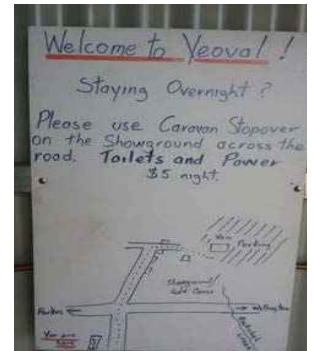 Welcome to Yeoval!
Staying Overnight?
Please use Caravan Stopover
on the Showground across the
road. Toilets and Power
$5 night.
Van
Parking
Showground/
Golf Course
Parkes
Wellington
You are
here